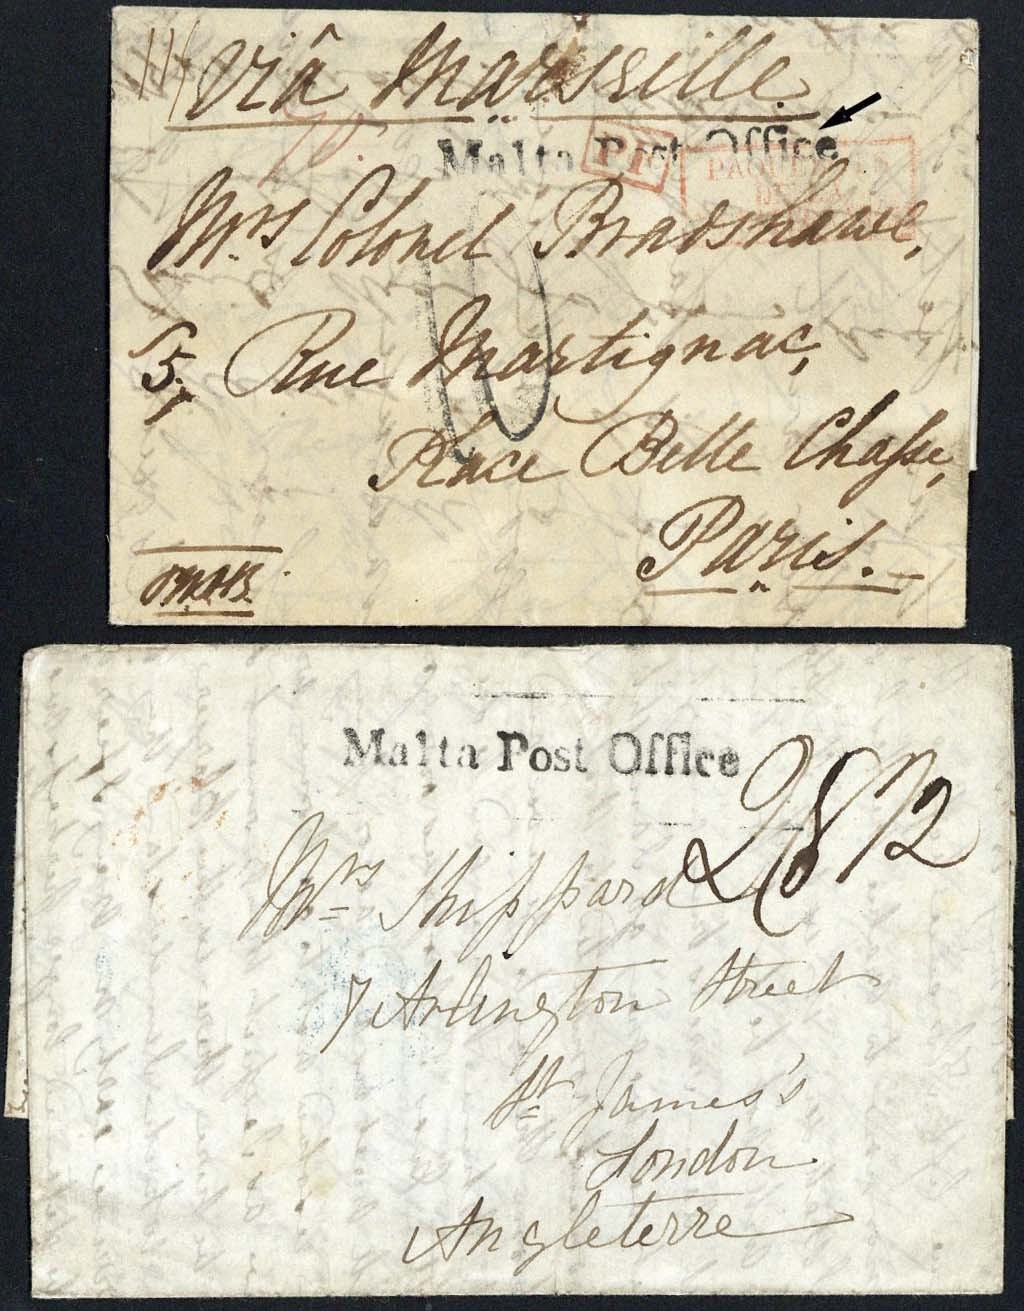 viâ Marseille.
Malta Post Office
P.P.
PAQUEBOTS
DE LA
10
Mrs. Colonel Bradshawe,
5, Rue Martignac,
Place Belle Chasse,
Paris.
Malta Post Office
2/8 1/2
Mrs Shippard
7 Arlington Street
St James's
London
Angleterre